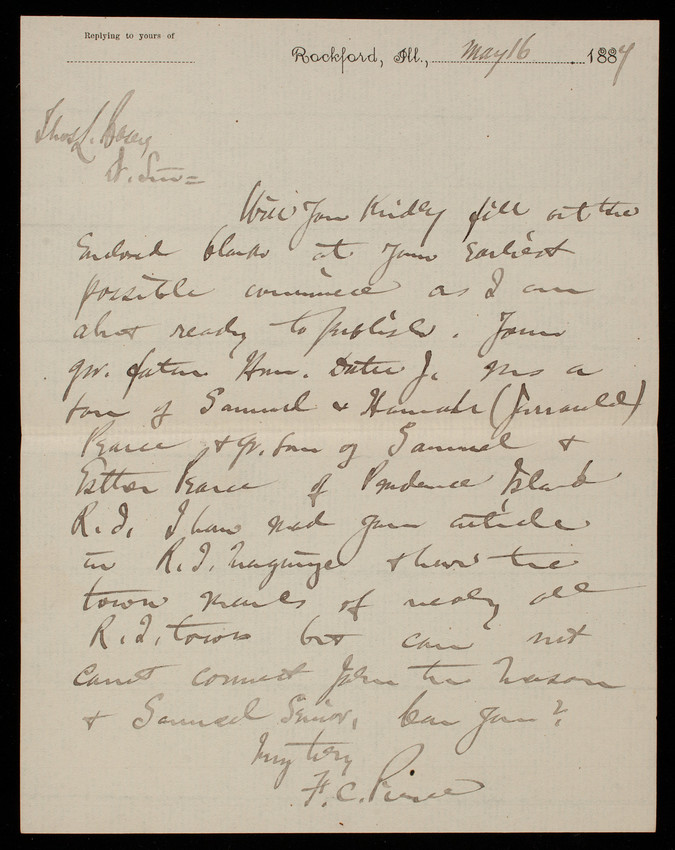 Replying to yours of
Rockford, Ill., May 16 1884
Thos. L. Casey
Dr. Sir =
Will you kindly fill out the
Enclosed blanks at your Earliest
possible convenience as I am
about ready to publish. Your
gr. father Hon. Dutee J. was a
son of Samuel & Hannah (Jerrauld)
Pearce & gr. son of Samuel &
Esther Pearce of Prudence Island
R.I. I have read your article
in R.I. Magazine & have the
town records of nearly all
R.I. towns but can not
connect John the Mason
& Samuel Senior. Can you?
Truly
F. C. Pierce